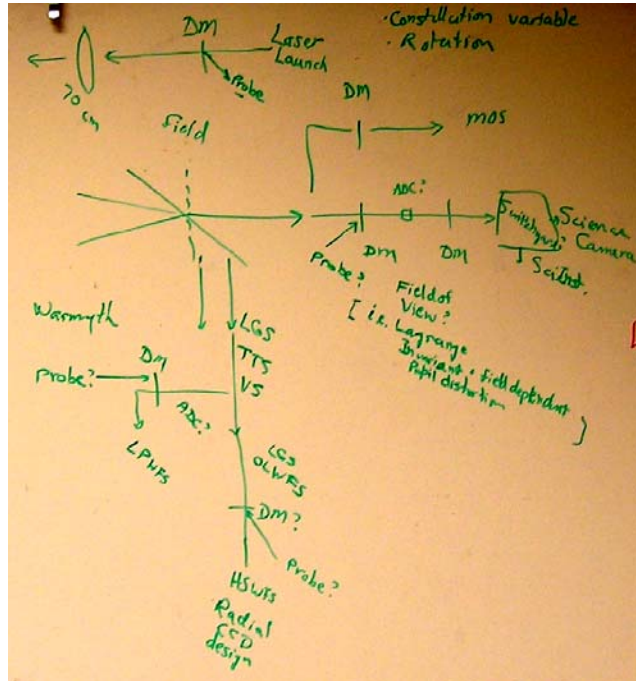 · Constellation variable
· Rotation
DM
Laser
Launch
Probe
70 cm
field
DM
MOS
ADC?
Switchyard?
Science
Camera
Sci Inst.
Probe?
DM
DM
Field of
View?
[ i.e. Lagrange
Invariant + field dependent
Pupil distortion ]
LGS
TTS
VS
Warmyth
DM
Probe?
ADC?
LPWFS
LGS
OLWFS
DM?
Probe?
HSWFS
Radial
CCD
design